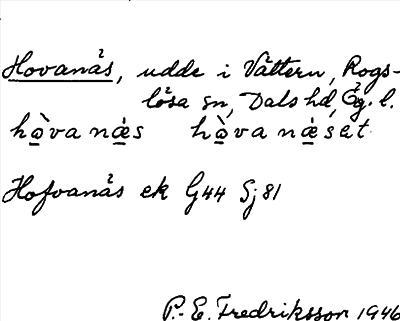 Hovanäs, udde i Vättern, Rogs-
lösa sn, Dals hd, Ög. l.
hò̱va nǽ̱s hò̱va nǽ̱set
Hofvanäs ek G44 Sj81
P.-E. Fredriksson 1946